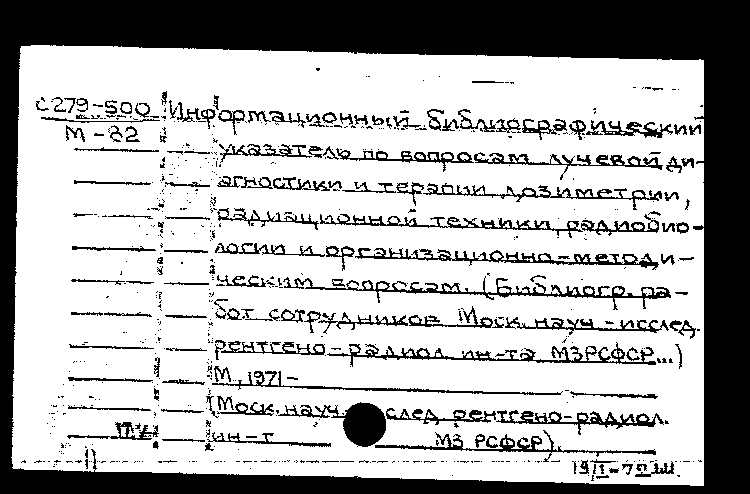 С279-500 Информационный библиографический
М-82 указатель по вопросам лучевой ди-
агностики и терапии, дозиметрии,
радиационной техники, радиобио-
логии и организационно-методи-
ческим вопросам. (Библиогр. ра-
бот сотрудников Моск. науч.-исслед.
рентгено-радиол. ин-та МЗРСФСР...)
М., 1971-
(Моск. науч след. рентгено-радиол.
ин-т МЗ РСФСР).